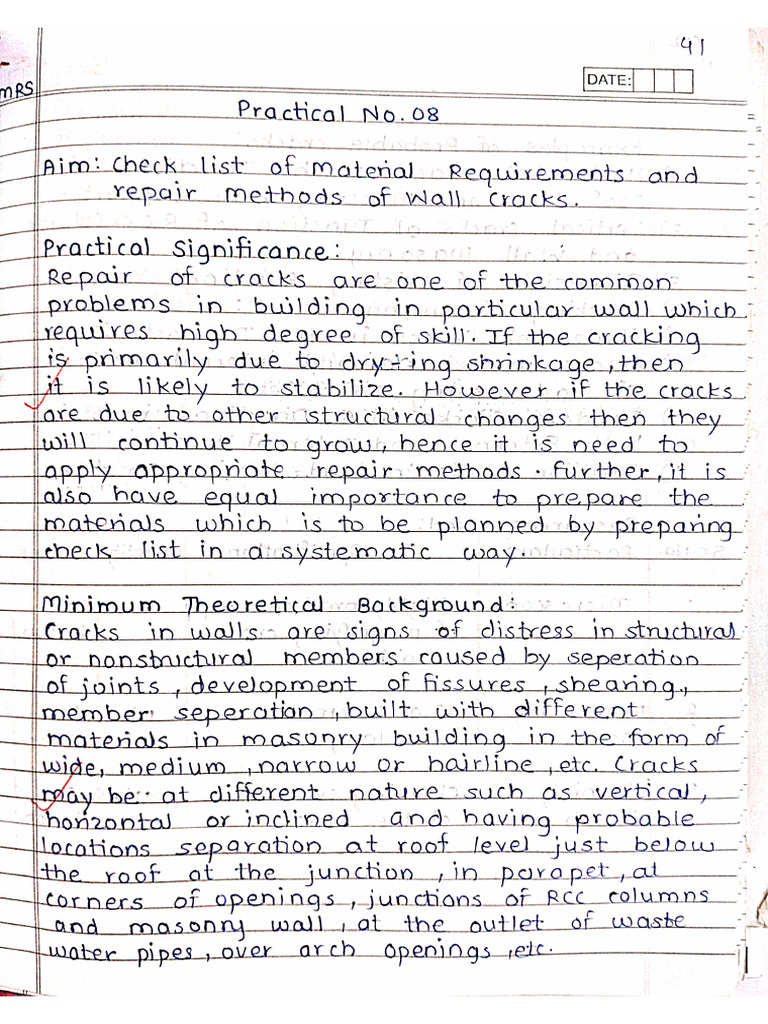 41
DATE:
MRS
Practical No. 08
Aim: Check list of Material Requirements and
repair methods of Wall Cracks.
Practical Significance:
Repair of cracks are one of the common
problems in building in particular wall which
requires high degree of skill. If the cracking
is primarily due to drying shrinkage, then
it is likely to stabilize. However if the cracks
are due to other structural changes then they
will continue to grow, hence it is need to
apply appropriate repair methods. Further, it is
also have equal importance to prepare the
materials which is to be planned by preparing
check list in a systematic way.
Minimum Theoretical Background:
Cracks in walls are signs of distress in structural
or nonstructural members caused by seperation
of joints, development of fissures, shearing,
member seperation, built with different
materials in masonry building in the form of
wide, medium, narrow or hairline, etc. Cracks
may be at different nature such as vertical,
horizontal or inclined and having probable
locations separation at roof level just below
the roof at the junction, in parapet, at
corners of openings, junctions of RCC columns
and masonry wall, at the outlet of waste
water pipes, over arch openings, etc.